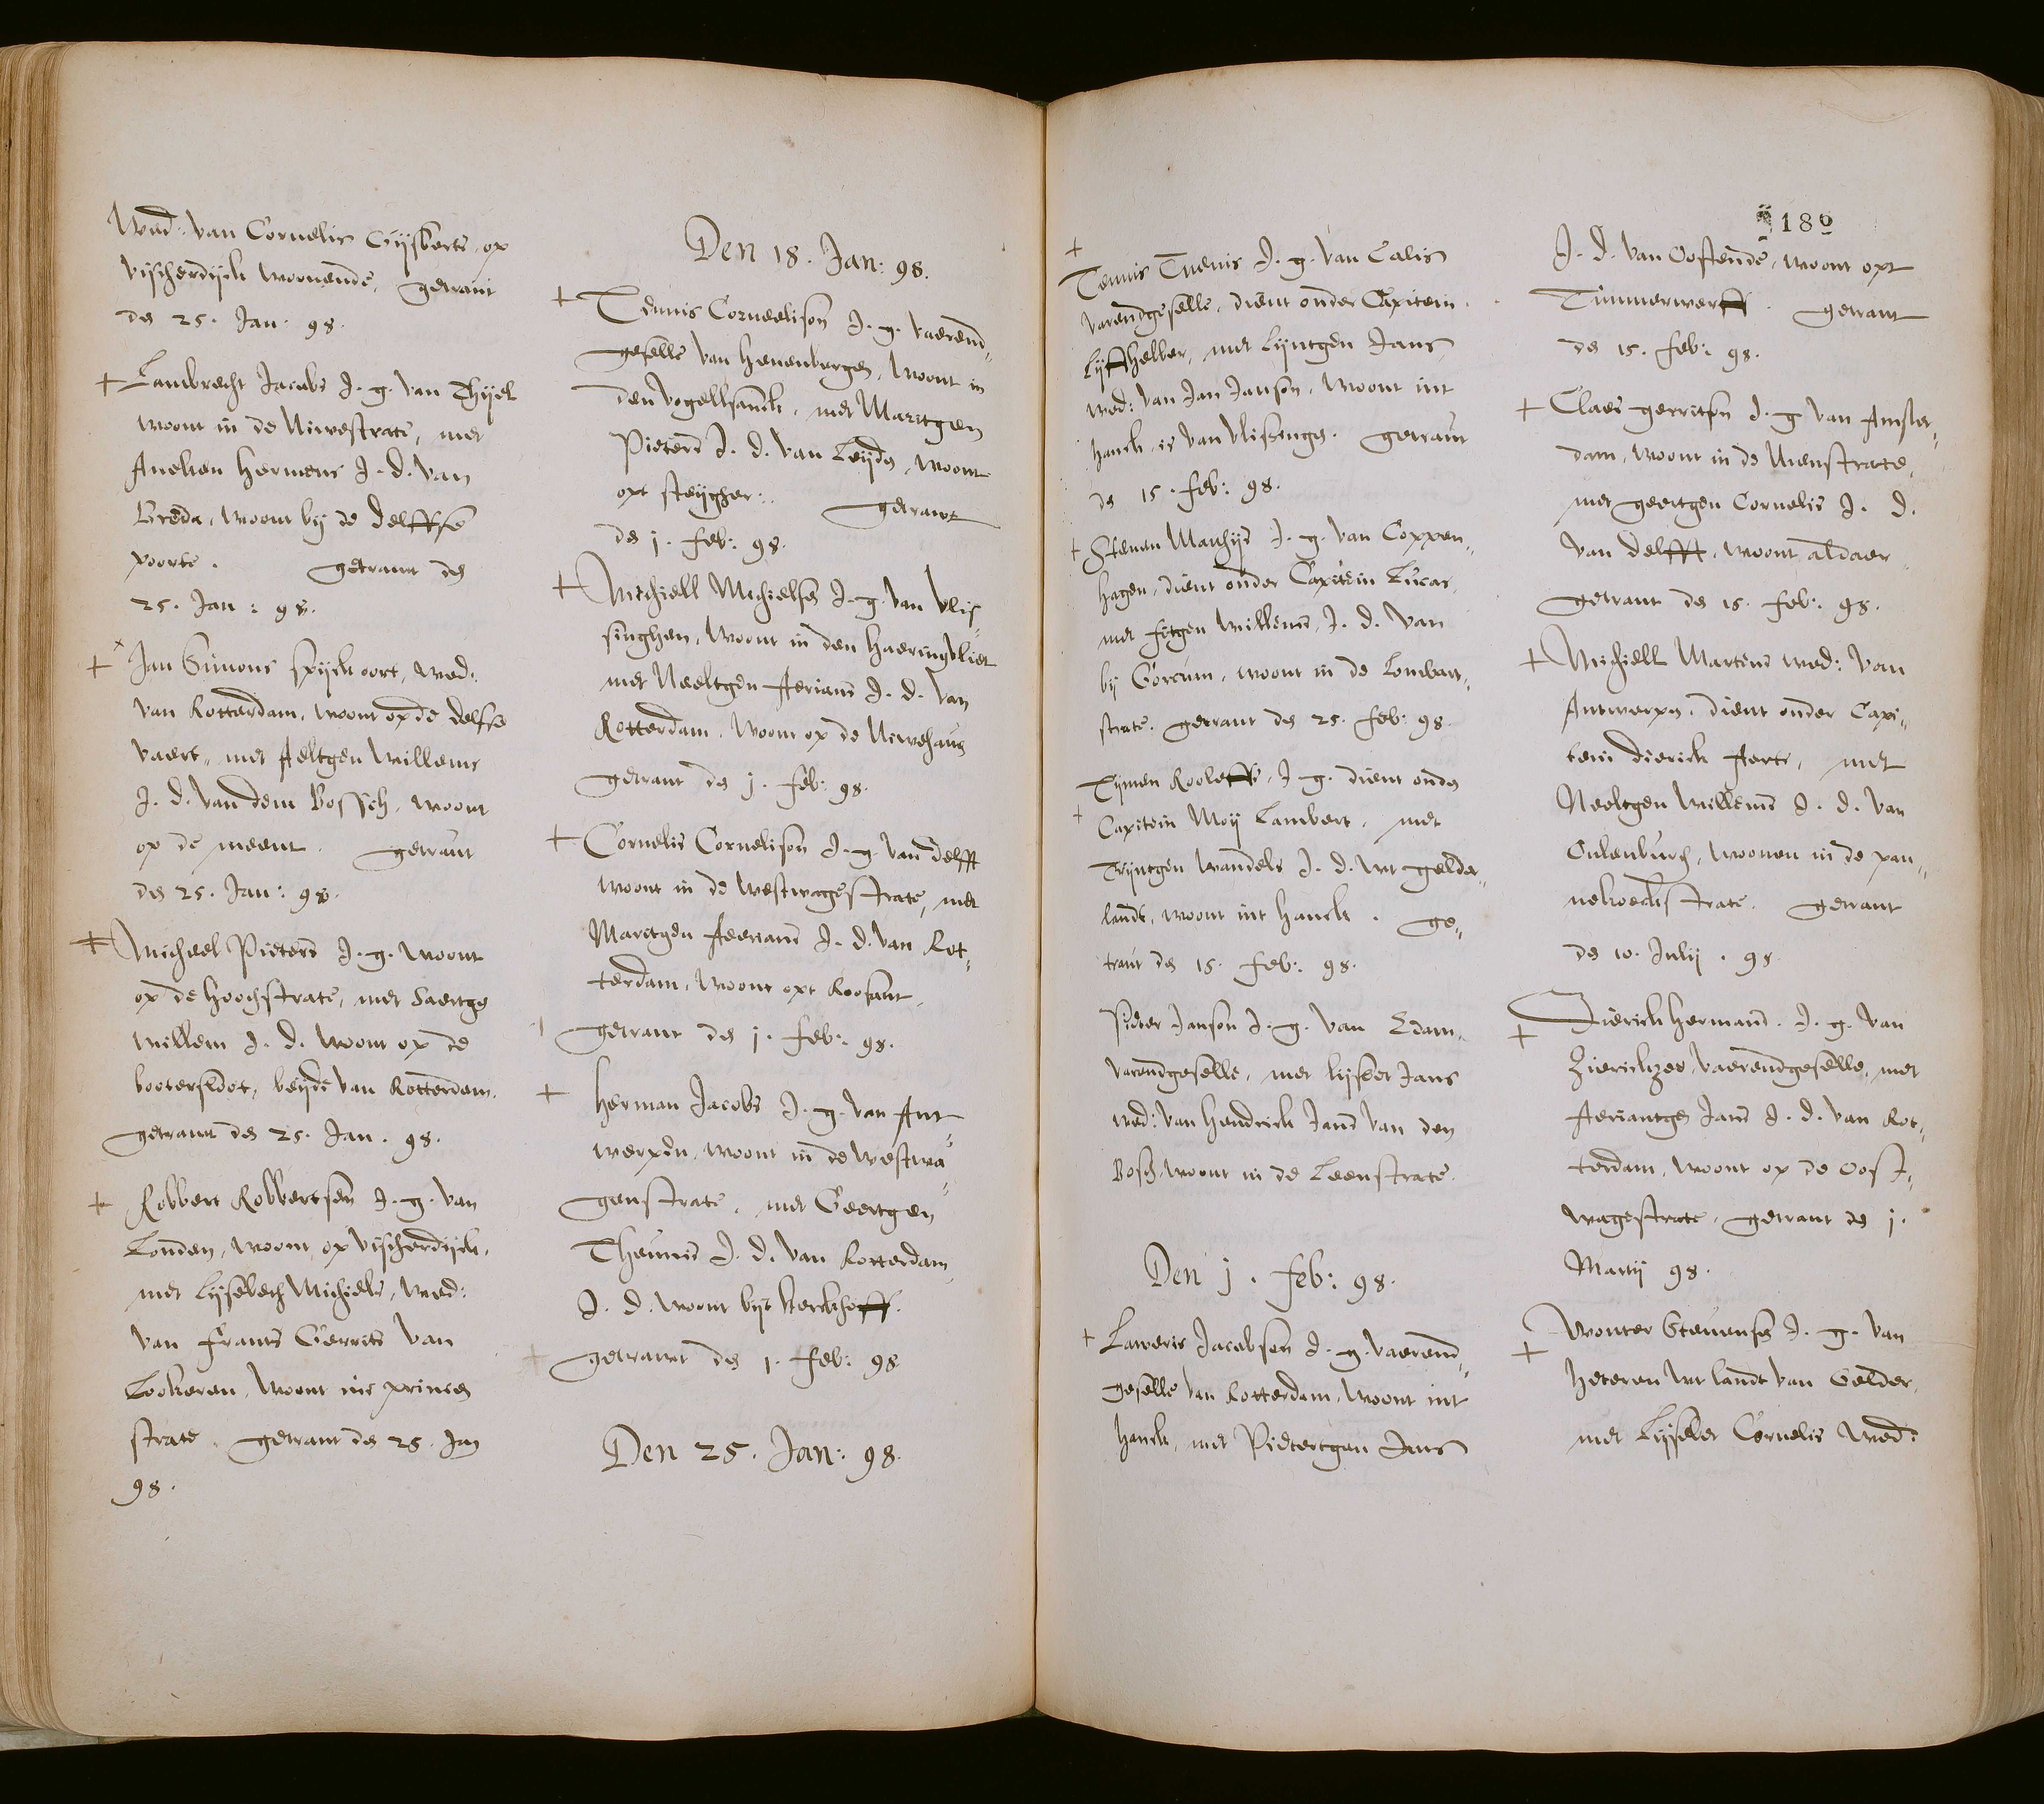 Wed: van Cornelis Gijsberts, op
vijscherdijck woonende, getraut
den 25. Jan: 98.
+ Lambrecht Jacobs J. g. van Thijel
woont in de Niewestrate, met
Aneken Hermens J. d. van
Breda, woont bij de delffse
poorte. getraut den
25. Jan: 98.
+ Jan Simons spijckoort, wed:
van Rotterdam, woont op de delfse
vaert, met Aeltgen Willems
J. d. van dem Bossch, woont
op de meent. getraut
den 25. Jan: 98.
+ Michael Pieters J. g. woont
op de hoochstrate, met Saertge
Willem J. d. woont op de
bootersloot, beijde van Rotterdam.
getraut den 25. Jan. 98.
+ Robbert Robbertsen J. g. van
Londen, woont op vijscherdijck,
met Lijsebeth Michiels, wed:
van Frants Gerrits van
Lookeren, woont inde princen
strate. getraut den 25. Jan
98.
Den 18. Jan: 98.
+ Teunis Corneelison J. g. vaerend„
geselle van Henenbergen, woont in
den vogellsanck, met Maritgen
Pieters J. d. van Leijden, woont
opt steijgher: getraut
den 1. feb: 98.
+ Michiell Michielsen J. g. van vlis„
singhen, woont in den Haeringvliet
met Neeltgen Aerians J. d. van
Rotterdam, woont op de Niwehaven
getraut den 1. feb: 98.
+ Cornelis Cornelison J. g. van delfft
woont in de westwagestrate, met
Maritgen Aeerians J. d. van Rot„
terdam, woont opt Roosant,
getraut den 1. feb: 98.
+ Herman Jacobs J. g. van Ant„
werpen, woont in de westwa„
genstrate, met Geertgen
Theunis J. d. van Rotterdam,
J. d. woont bijt kerckhoff.
+ getraut den 1. feb: 98
Den 25. Jan: 98.
180
+ Teunis Tuenis J. g. van Calis
varendgeselle, dient onder Capitein
Lijffhebber, met Lijntgen Jans
wed: van Jan Janson, woont int
hanck, is van vlissingen. getraut
den 15. feb: 98.
+ Steuen Mathijs J. g. van Coppen„
hagen, dient onder Capitein Lucas
met fitgen Willems, J. d. van
bij Gorcum, woont in de Lombart„
strate. getraut den 25. feb: 98.
+ Tijmen Rooleffs, J. g. dient onder
Capitein Moij Lambert, met
Trijntgen Wandels J. d. wt gelder„
landt, woont int hanck. ge„
traut den 15. feb: 98.
Pieter Janson J. g. van Edam,
varendgeselle, met lijsbet Jans
wed: van Hendrick Jans van den
Bosch, woont in de Leenstrate.
Den 1. feb: 98.
+ Laweris Jacobsen J. g. vaerend„
geselle van Rotterdam, woont int
hanck, met Pietertgen Jans
J. d. van Oostende, woont opt
Timmerwerff. getraut
den 15. feb: 98.
+ Claes gerritsen J. g van Amster„
dam, woont in de Uienstrate,
met geertgen Cornelis J. d.
van delfft, woont aldaer
getraut den 15. feb: 98.
+ Michiell Martens wed: van
Antwerpen, dient onder Capi„
tein dierick Aerts, met
Neeltgen Willems J. d. van
Culenburch, woonen in de pan„
nekoeckstrate. getraut
den 10. Julij. 98
+ Dierick Hermans. J. g. van
Zierickzee, vaerendgeselle, met
Aeriantgen Jans J. d. van Rot„
terdam, woont op de oost„
wagestrate, getraut den 1.
Martij 98.
+ Wouter Steuensen J. g. van
Heteren wt landt van Gelder,
met Lijsbet Cornelis wed: